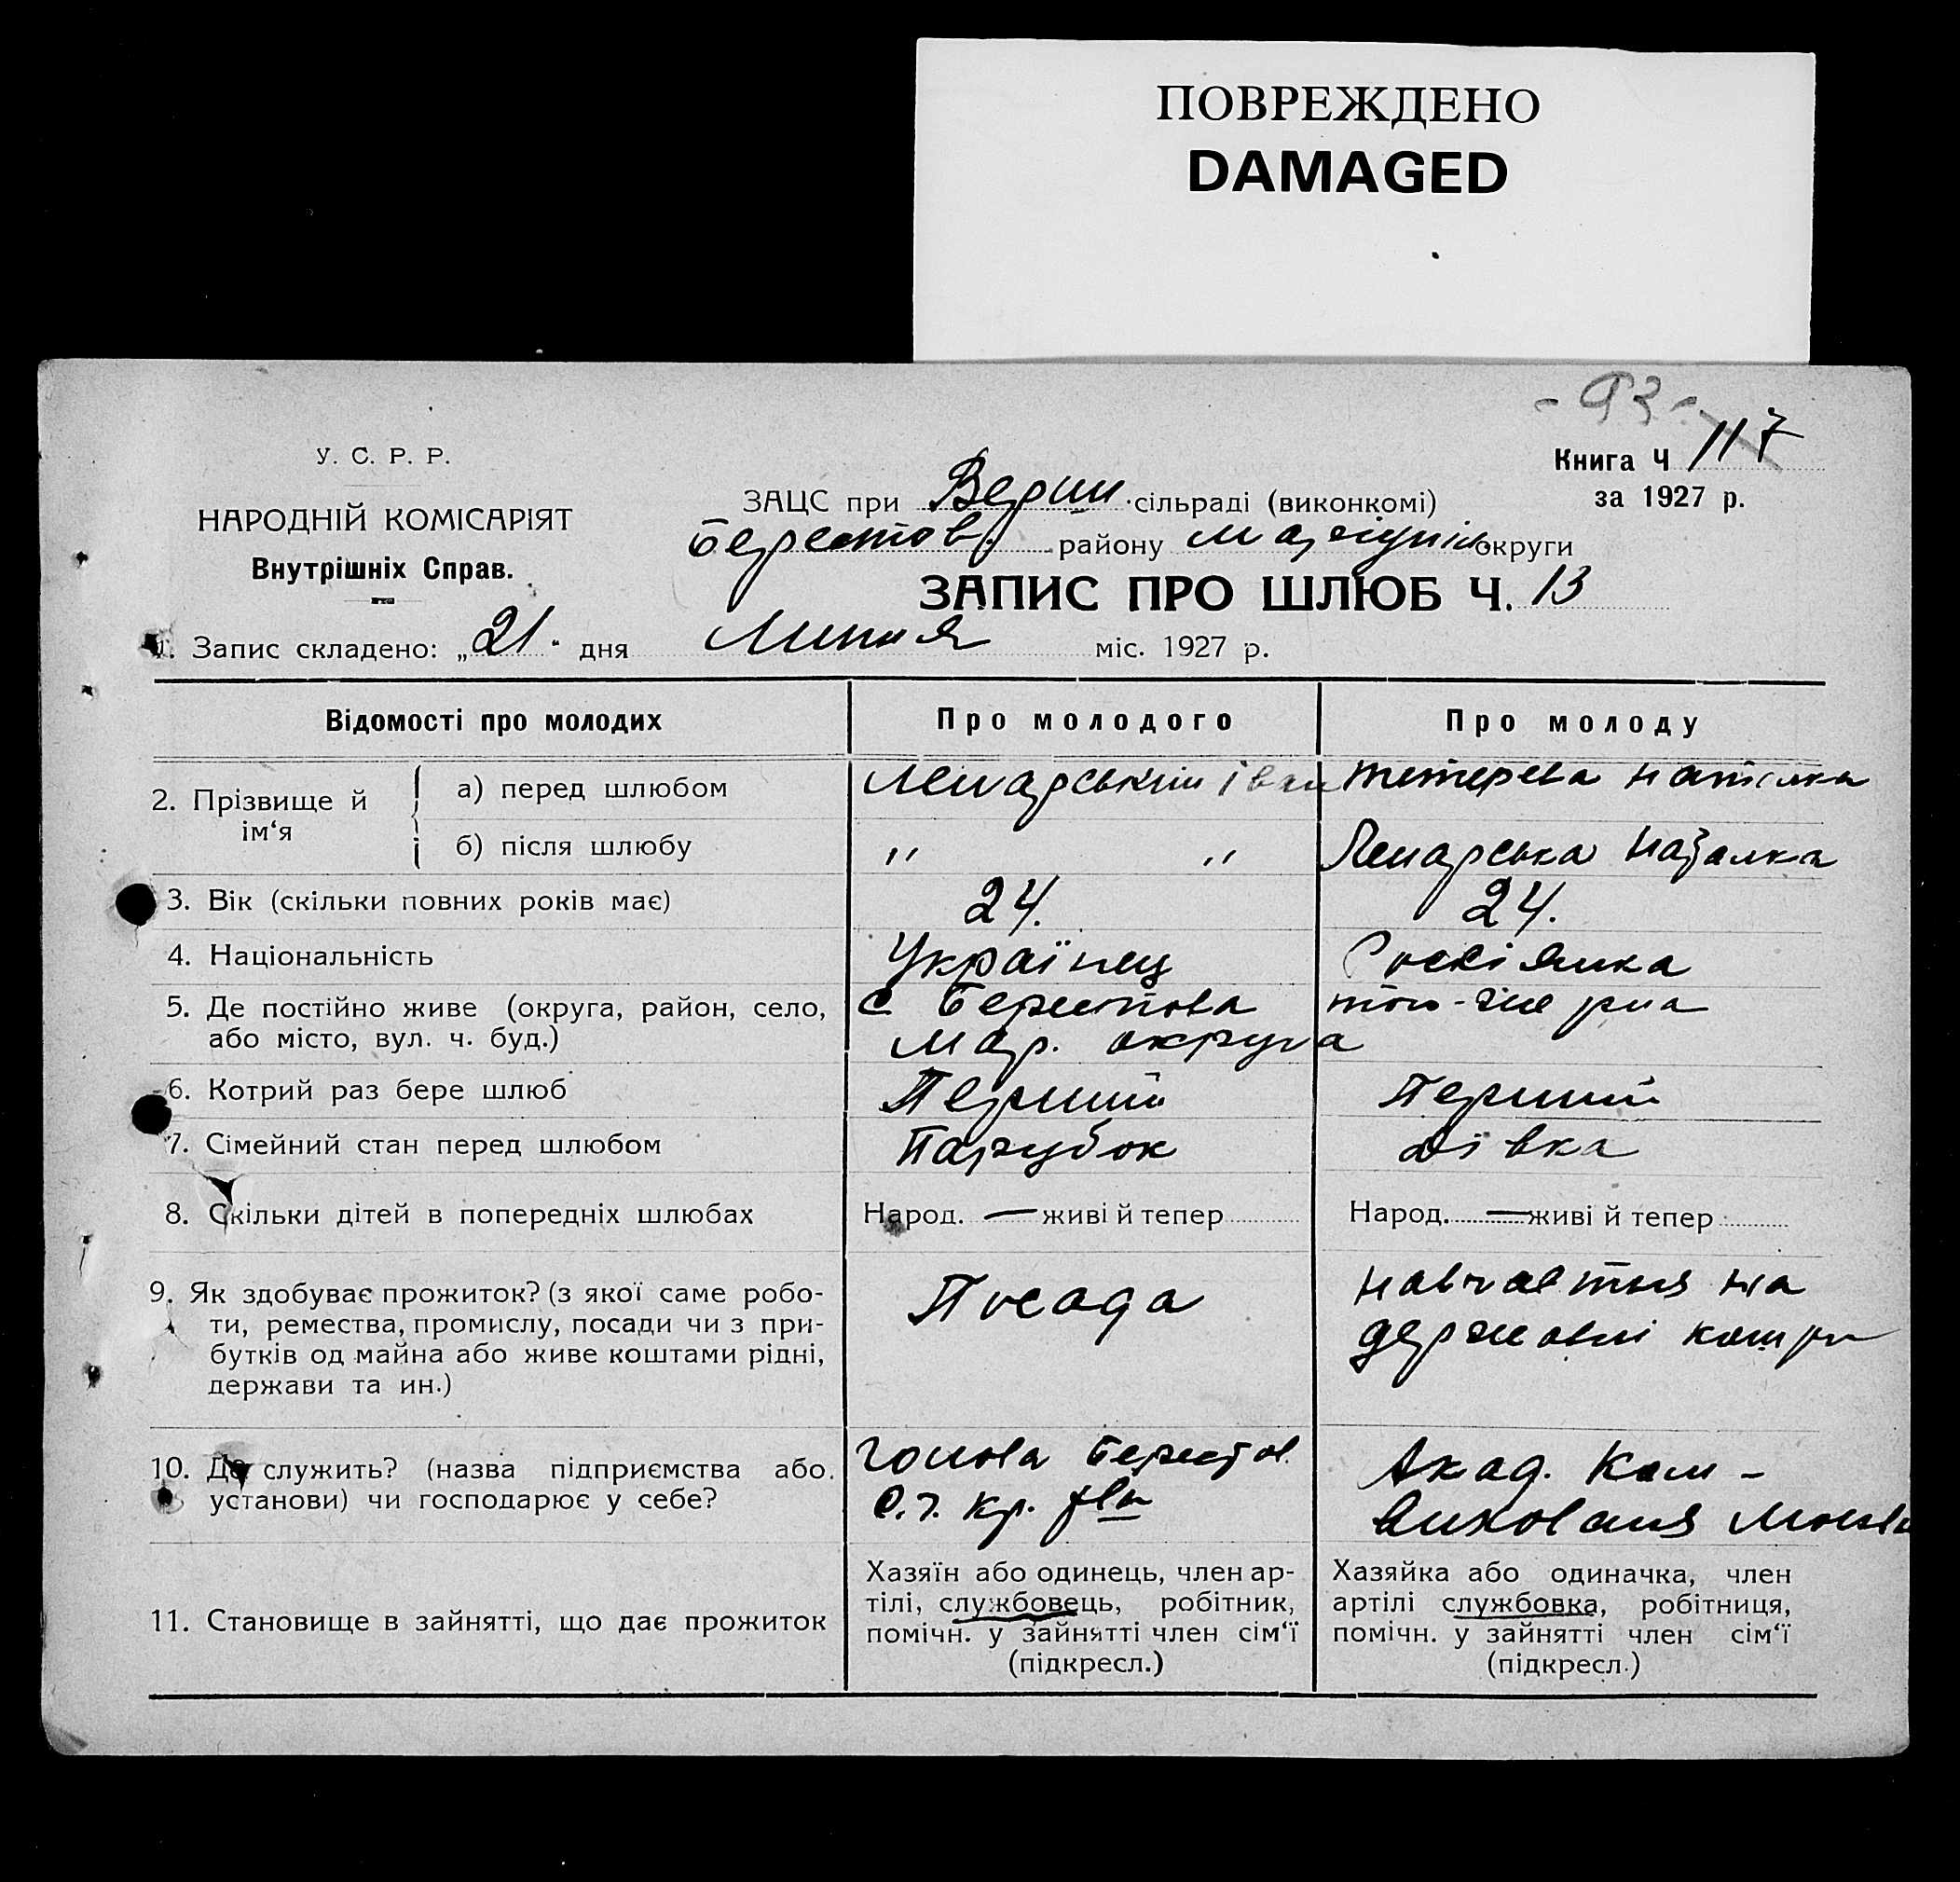 ПОВРЕЖДЕНО
DAMAGED
- 93 -
У. С. Р. Р.
НАРОДНІЙ КОМІСАРІЯТ
Внутрішніх Справ.
Книга Ч 117
за 1927 р.
ЗАЦС при сільраді (виконкомі)
Берестов. району Маріупіль округи
ЗАПИС ПРО ШЛЮБ Ч. 13
1. Запис складено: „21" дня Липня міс. 1927 р.
Відомості про молодих Про молодого Про молоду
2. Прізвище й ім‘я
а) перед шлюбом Іван Тетерева Наталка
б) після шлюбу " " Наталка
3. Вік (скільки повних років має) 24. 24.
4. Національність Українец Росіянка
5. Де постійно живе (округа, район, село, с. Берестова того-же р-на
або місто, вул. ч. буд.) Мар. округа
6. Котрий раз бере шлюб Перший Перший
7. Сімейний стан перед шлюбом Парубок Дівка
8. Скільки дітей в попередніх шлюбах Народ. — живі й тепер Народ. — живі й тепер
9. Як здобуває прожиток? (з якої саме робо- Посада
ти, ремества, промислу, посади чи з при-
бутків од майна або живе коштами рідні,
держави та ин.)
навчается на
державні кошти
10. Де служить? (назва підприємства або Голова Берестов. Акад. Ком-
установи) чи господарює у себе? виховання
11. Становище в зайнятті, що дає прожиток
Хазяїн або одинець, член ар-
тілі, службовець, робітник,
помічн. у зайнятті член сім‘ї
(підкресл.)
Хазяйка або одиначка, член
артілі службовка, робітниця,
помічн. у зайнятті член сім‘ї
(підкресл.)